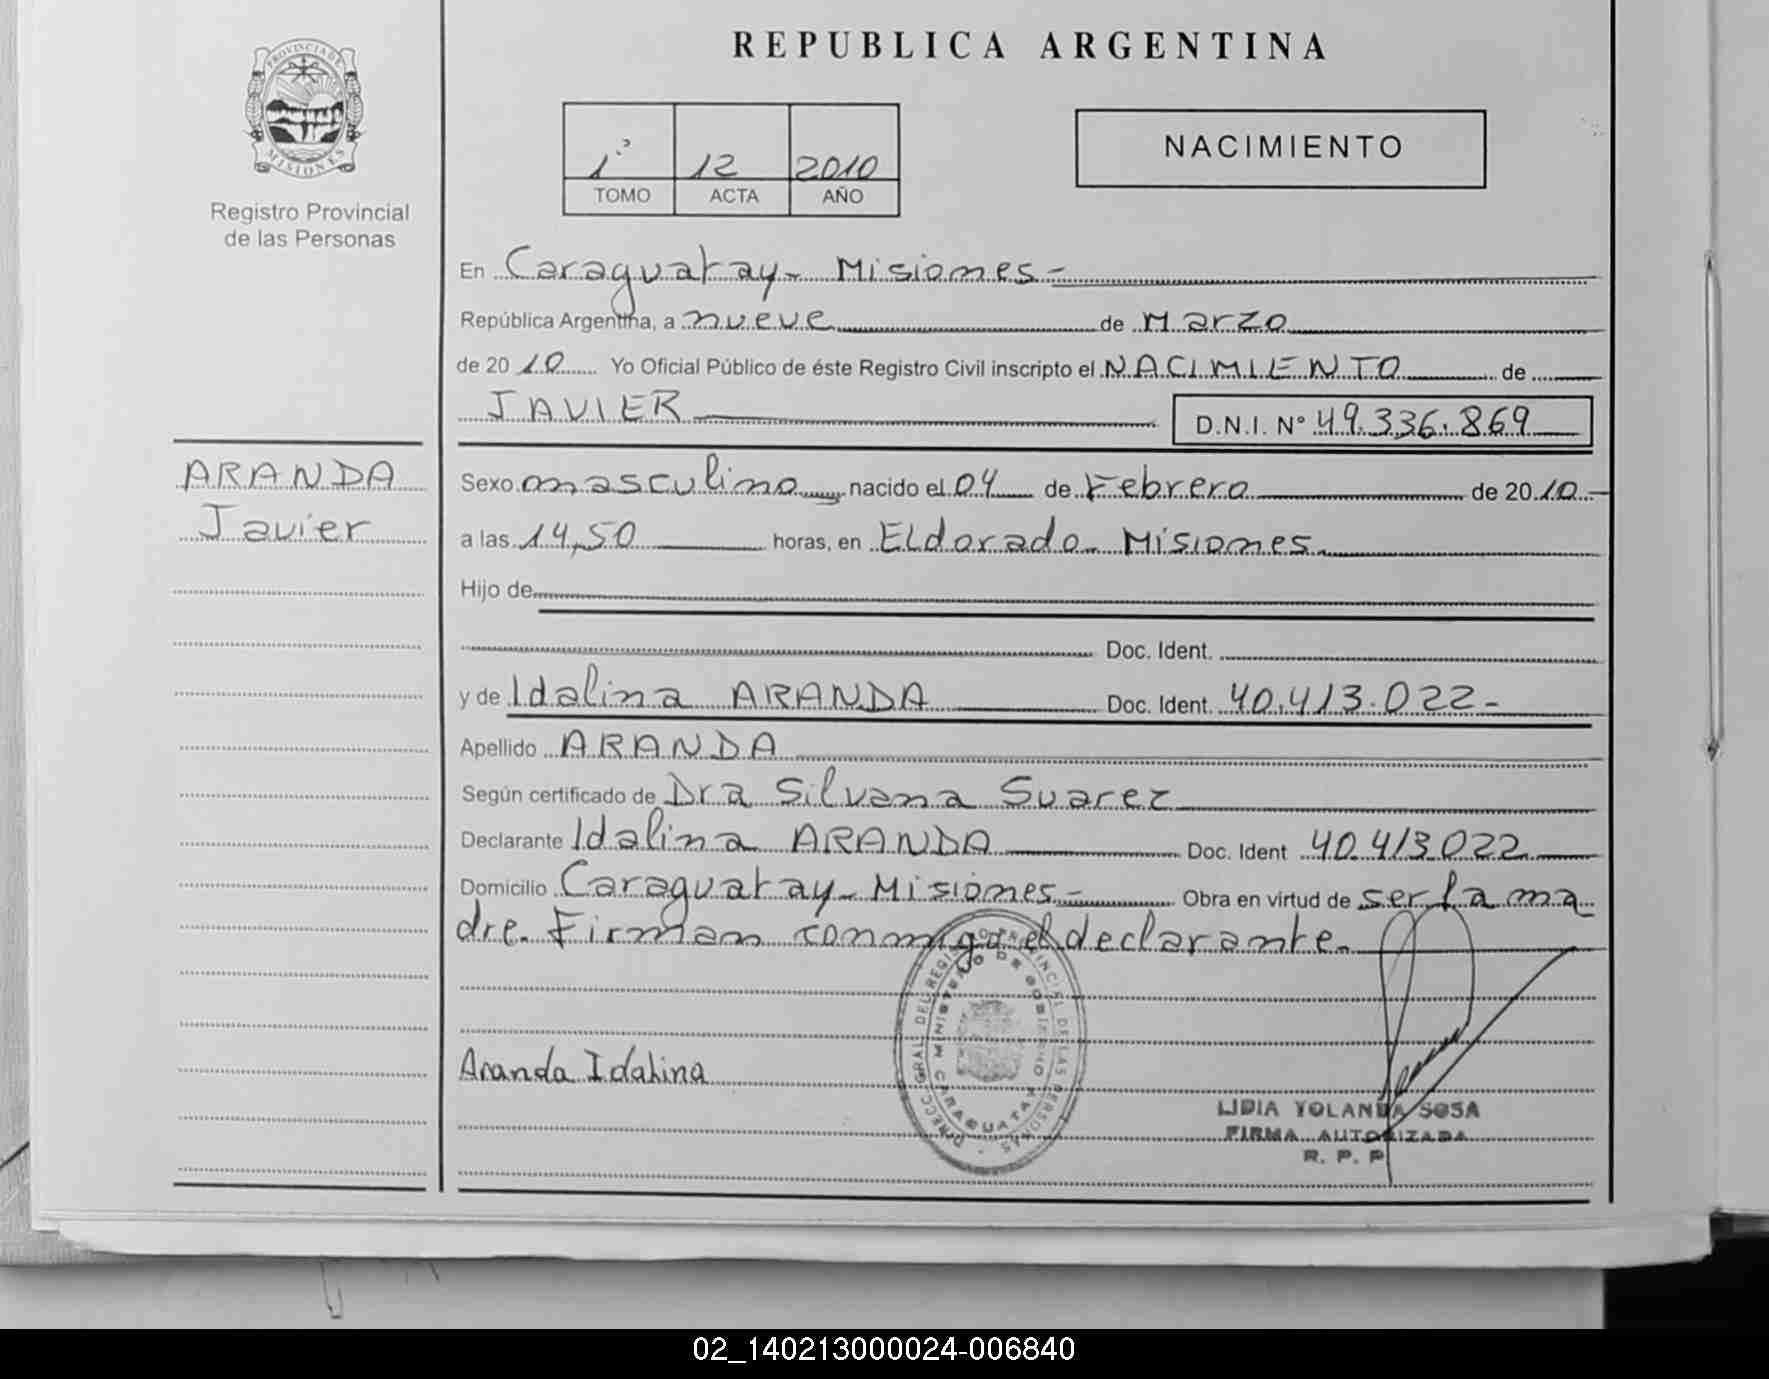 REPUBLICA ARGENTINA
PROVINCIA DE MISIONES
Registro Provincial
de las Personas
1º 12 2010
TOMO ACTA AÑO
NACIMIENTO
En Caraguatay - Misiones -
República Argentina, a nueve de Marzo
de 2010 Yo Oficial Público de éste Registro Civil inscripto el NACIMIENTO de
JAVIER D.N.I. N° 49.336.869
ARANDA
Javier
Sexo masculino nacido el 04 de Febrero de 2010 -
a las 14,50 horas, en Eldorado - Misiones.
Hijo de
Doc. Ident.
y de Idalina ARANDA Doc. Ident. 40.413.022 -
Apellido ARANDA
Según certificado de Dra Silvana Suarez
Declarante Idalina ARANDA Doc. Ident 40.413.022
Domicilio Caraguatay - Misiones - Obra en virtud de ser la ma
dre. Firman conmigo el declarante.
DIRECC. GRAL. DEL REGISTRO PROVINCIAL DE LAS PERSONAS
MINISTERIO DE GOBIERNO
CARAGUATAY
Aranda Idalina
LIDIA YOLANDA SOSA
FIRMA AUTORIZADA
R. P. P
02_140213000024-006840